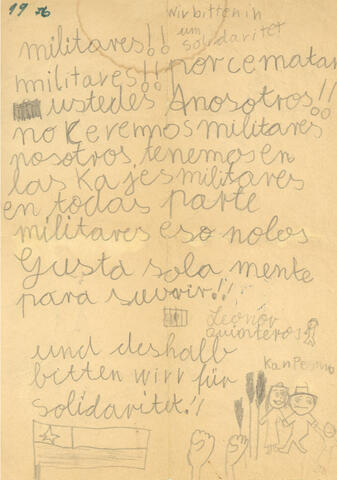 19 76
Wir bitten in
um
solidaritet
militares!!
militares!! porce matan
ustedes Anosotros!!
no Keremos militares
nosotros tenemos en
las Kajes militares
en todas parte
militares eso nolos
Gusta sola mente
para suvrir!!
Leonor
quinteros
und deshalb
bitten wirr für
Solidaritet!!
Kanpesino